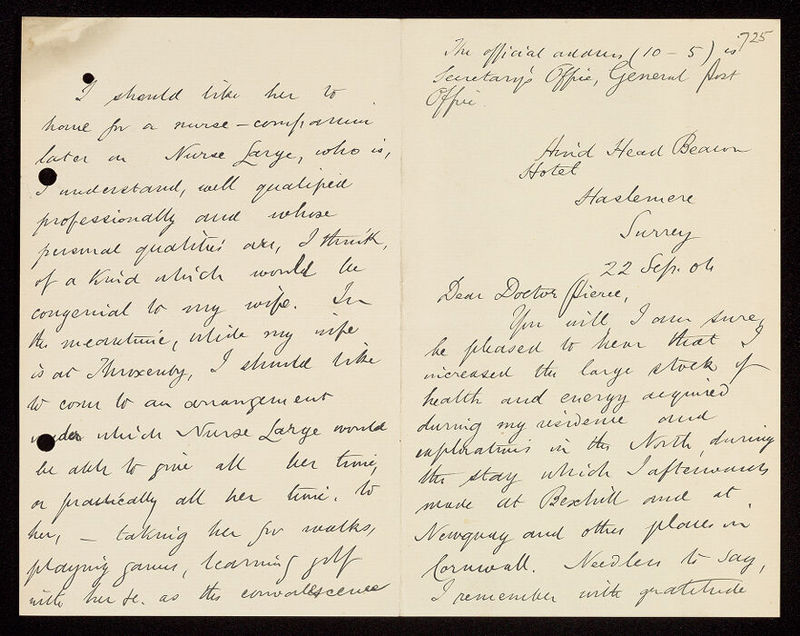 I should like her to
home for a nurse-companion
later on Nurse Large, who is,
I understand, well qualified
professionally and whose
personal qualities are, I think,
of a kind which would be
congenial to my wife. In
the meantime, while my wife
is at Throxenby, I should like
to come to an arrangement
under which Nurse Large would
be able to give all her time,
or practically all her time, to
her, — taking her for walks,
playing games, learning golf
with her &c. as the convalescence
725
The official address (10 – 5) is
Secretary's Office, General Post
Office.
Hind Head Beacon
Hotel
Haslemere
Surrey
22 Sep. 06
Dear Doctor Pierce,
You will I am sure,
be pleased to hear that I
increased the large stock of
health and energy acquired
during my residence and
explorations in the North, during
the stay which I afterwards
made at Bexhill and at
Newquay and other places in
Cornwall. Needless to say,
I remember with gratitude